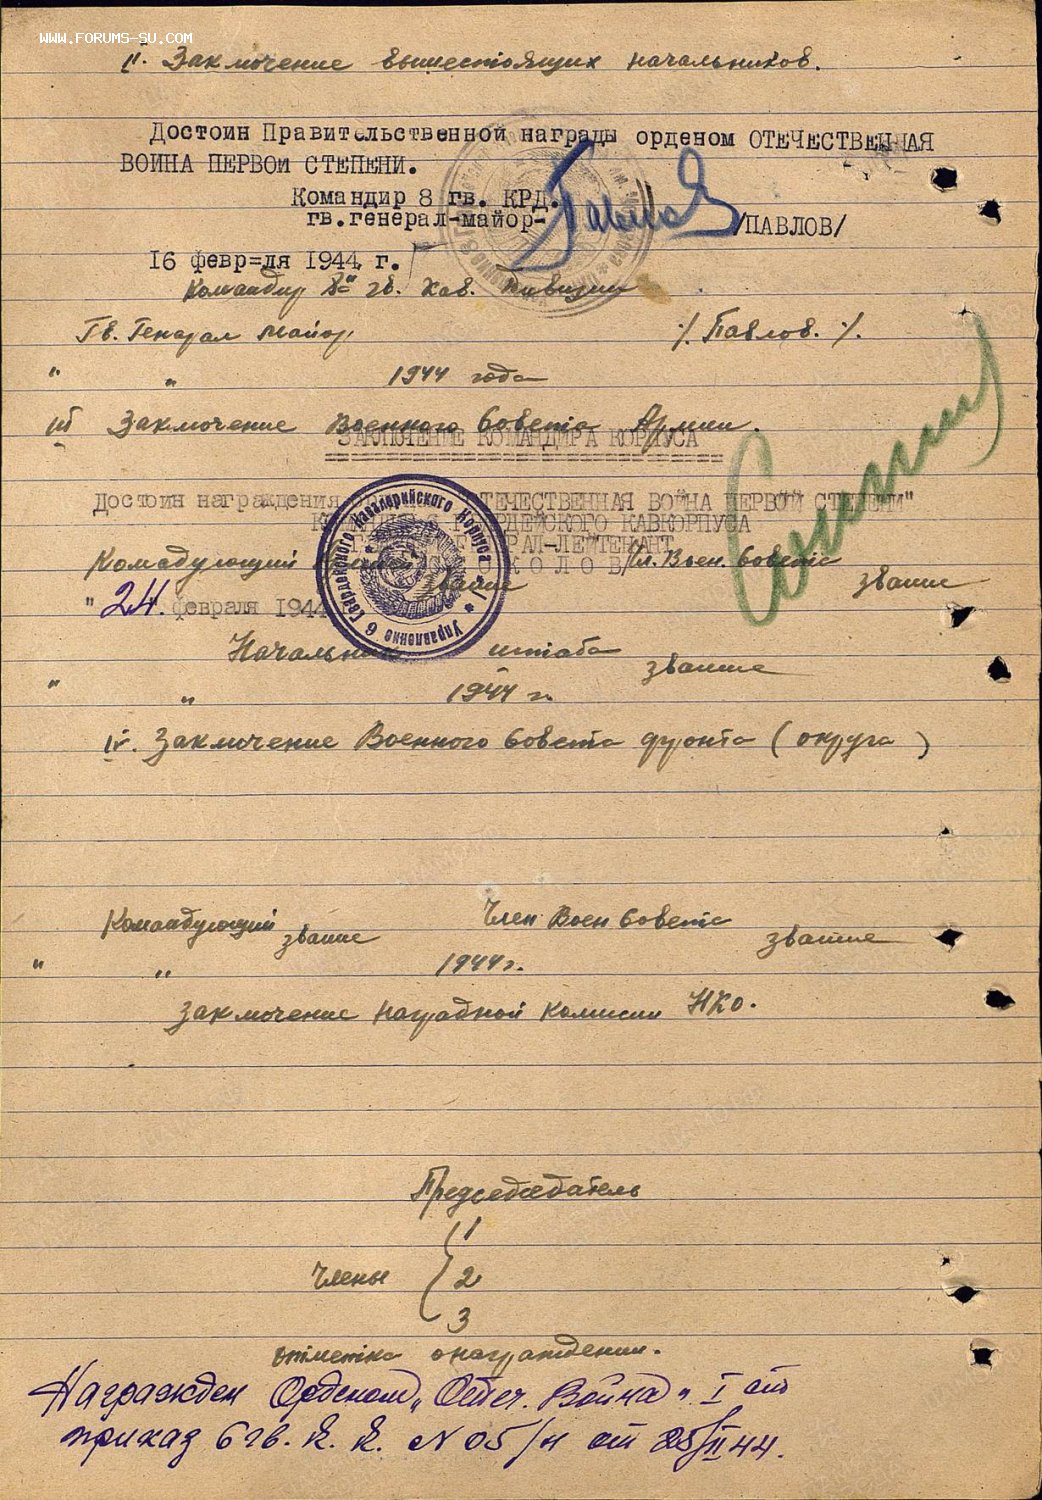 WWW.FORUMS-SU.COM
II. Заключение вышестоящих начальников.
Достоин Правительственной награды орденом ОТЕЧЕСТВЕННАЯ
ВОИНА ПЕРВОЙ СТЕПЕНИ.
Командир 8 гв. КРД.
гв.генерал-майор-
/ПАВЛОВ/
16 февр=ля 1944 г.
Командир 8й гв. Кав. Дивизии
Гв. Генерал Майор ./. Павлов. ./.
" " 1944 года
III Заключение Военного Совета Армии.
ЗАКЛЮЧЕНИЕ КОМАНДИРА КОРПУСА
Достоин награждения ОТЕЧЕСТВЕННАЯ ВОЙНА ПЕРВОЙ СТЕПЕНИ"
ГВАРДЕЙСКОГО КАВКОРПУСА
ГЕНЕРАЛ-ЛЕЙТЕНАНТ
СОКОЛОВ/
Комадующий Армией звание Чл. Воен. Совета звание
"24" февраля 1944
Управление 6 Гвардейского Кавалерийского Корпуса
Начальник штаба звание
" " 1944 г.
IV. Заключение Военного Совета фронта (округа)
Командующий звание Член Воен Совета звание
" " 1944г.
Заключение наградной комисии НКО.
Председатель
1
Члены 2
3
отметка о награждении.
Награжден Орденом „Отеч. Война" I ст
приказ 6 гв. К. К. № 05/н от 25/II 44.